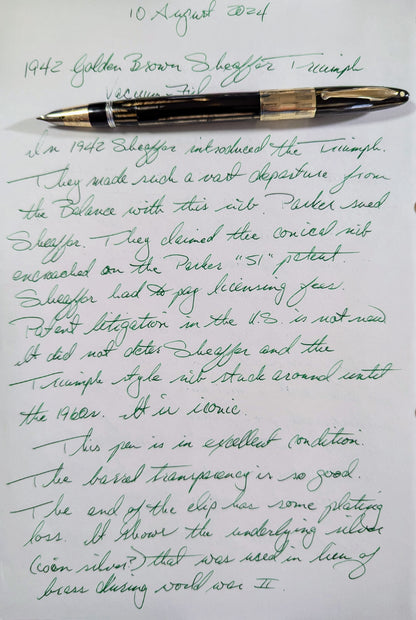 10 August 2024
1942 Golden Brown Sheaffer Triumph
Vacuum-Fil
In 1942 Sheaffer introduced the Triumph.
They made such a vast departure from
the Balance with this nib. Parker sued
Sheaffer. They claimed the conical nib
encroached on the Parker "51" patent.
Sheaffer had to pay licensing fees.
Patent litigation in the U.S. is not new.
It did not deter Sheaffer and the
Triumph style nib stuck around until
the 1960s. It is iconic.
This pen is in excellent condition.
The barrel transparency is so good.
The end of the clip has some plating
loss. It shows the underlying silver
(coin silver?) that was used in lieu of
brass during world war II.